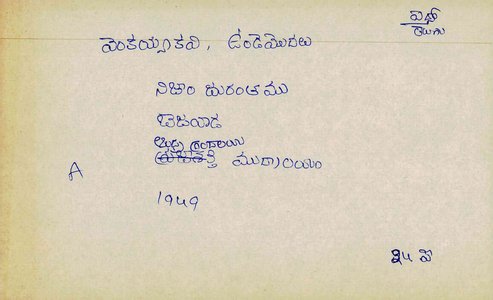 వెంకయ్య కవి, ఉండెమొదలు
నిజాం దురంతము
బెజవాడ
ఆంధ్ర గ్రంథాలయ
ముద్రాలయం
A
1949
24 పే